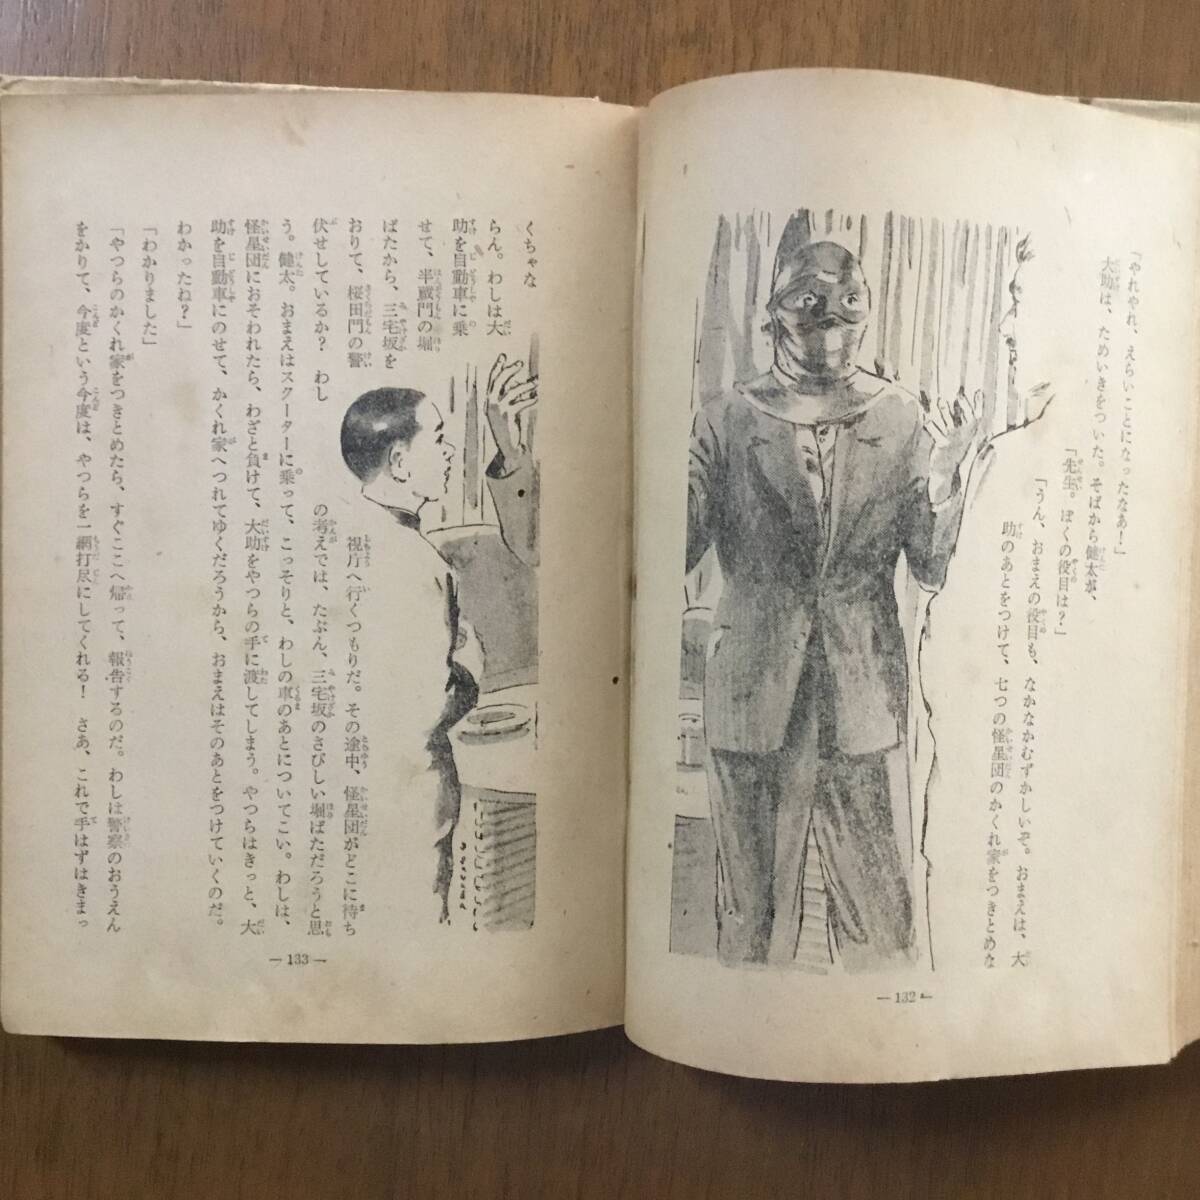 「やれやれ、えらいことになったなあ！」
大助は、ためいきをついた。そばから健太が、
「先生。ぼくの役目は？」
「うん、おまえの役目も、なかなかむずかしいぞ。おまえは、大
助のあとをつけて、七つの怪星団のかくれ家をつきとめな
— 132 —
くちゃな
らん。わしは大
助を自動車に乗
せて、半蔵門の堀
ばたから、三宅坂を
おりて、桜田門の警
視庁へ行くつもりだ。その途中、怪星団がどこに待ち
伏せしているか？　わし
の考えでは、たぶん、三宅坂のさびしい堀ばただろうと思
う。健太。おまえはスクーターに乗って、こっそりと、わしの車のあとについてこい。わしは、
怪星団におそわれたら、わざと負けて、大助をやつらの手に渡してしまう。やつらはきっと、大
助を自動車にのせて、かくれ家へつれてゆくだろうから、おまえはそのあとをつけていくのだ。
わかったね？」
「わかりました」
「やつらのかくれ家をつきとめたら、すぐここへ帰って、報告するのだ。わしは警察のおうえん
をかりて、今度という今度は、やつらを一網打尽にしてくれる！　さあ、これで手はずはきまっ
— 133 —